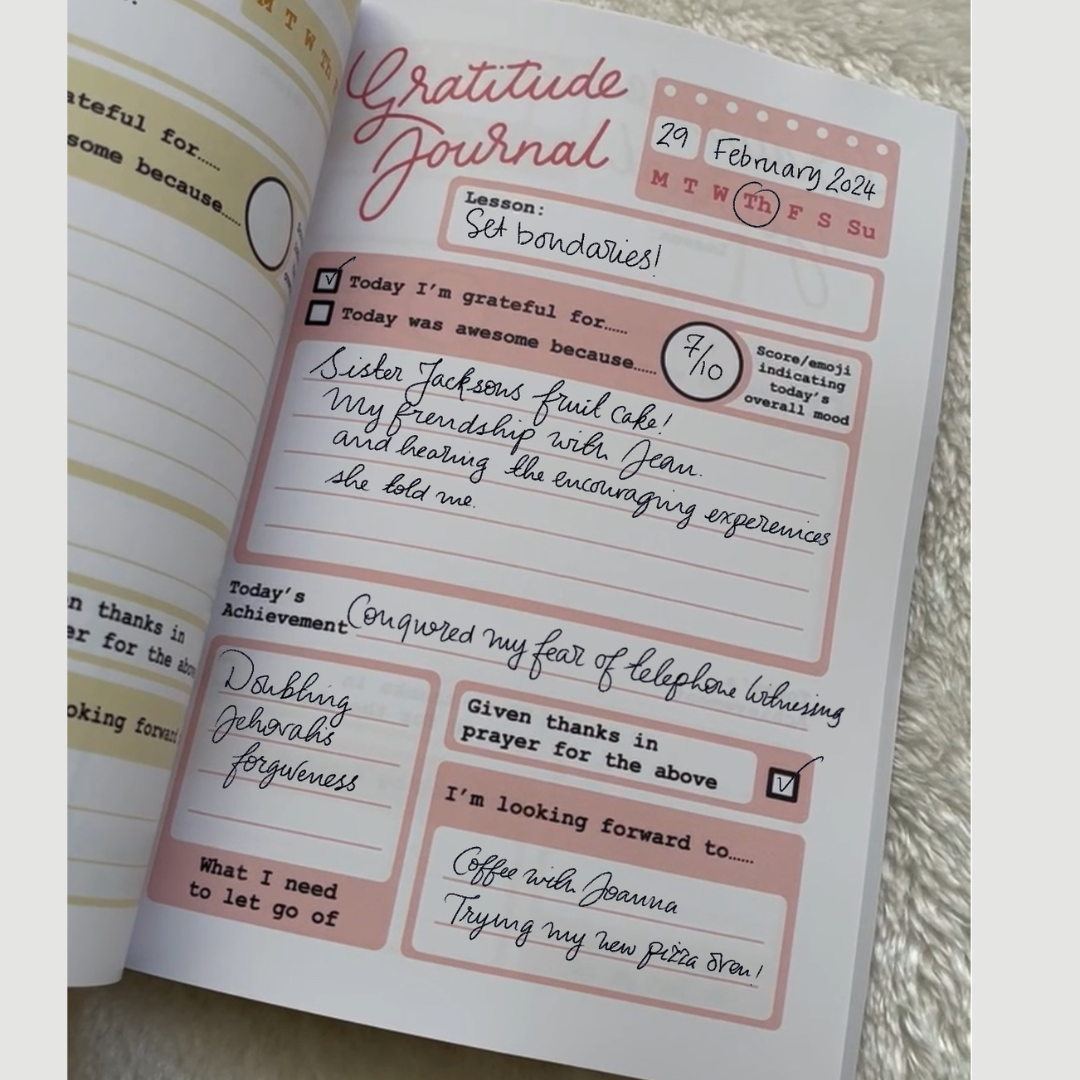 M T W Th
ateful for......
some because......
n thanks in
er for the abo
oking forward
Gratitude
Journal
29 February 2024
M T W Th F S Su
Lesson:
Set bondaries!
Today I'm grateful for......
Today was awesome because......
7/10
Score/emoji
indicating
today's
overall mood
Sister Jacksons fruit cake!
My frendship with Jean.
and hearing the encouraging experenices
she told me.
Today's
Achievement Conqured my fear of telephone witnessing
Doubting
Jehovah's
forgiveness
What I need
to let go of
Given thanks in
prayer for the above
I'm looking forward to......
Coffee with Joanna
Trying my new pizza oven!